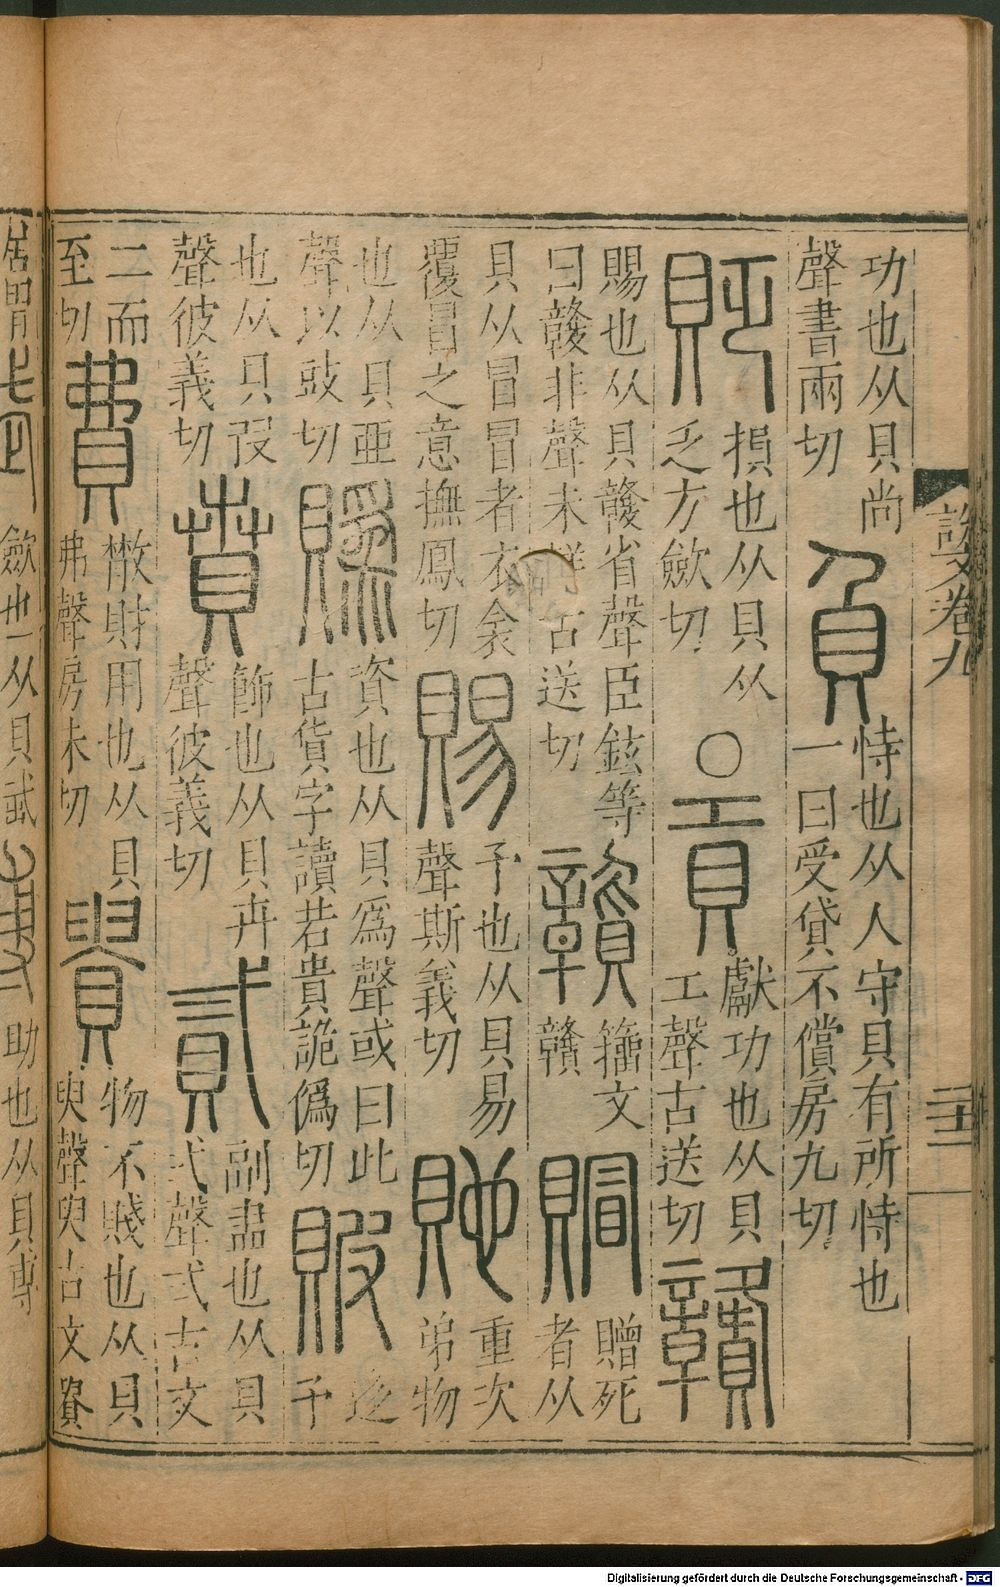 功也从貝尚
聲書兩切
負
恃也从人守貝有所恃也
一曰受貸不償房九切
貶
損也从貝从
乏方斂切
○
貢
獻功也从貝
工聲古送切
贛
賜也从貝竷省聲臣鉉等
曰竷非聲未詳古送切
籀文
贛
賵
贈死
者从
貝从冒冒者衣衾
覆冒之意撫鳳切
賜
予也从貝易
聲斯義切
貤
重次
弟物
也从貝亞
聲以豉切
䞈
資也从貝爲聲或曰此
古貨字讀若貴詭僞切
貱
迻
予
也从貝
聲彼義切
賁
飾也从貝卉
聲彼義切
貳
副益也从貝
弍聲弍古文
二而
至切
費
散財用也从貝
弗聲房未切
貴
物不賤也从貝
臾聲臾古文
說文卷九
斂也从貝武
助也从貝尃
Digitalisierung gefördert durch die Deutsche Forschungsgemeinschaft - DFG